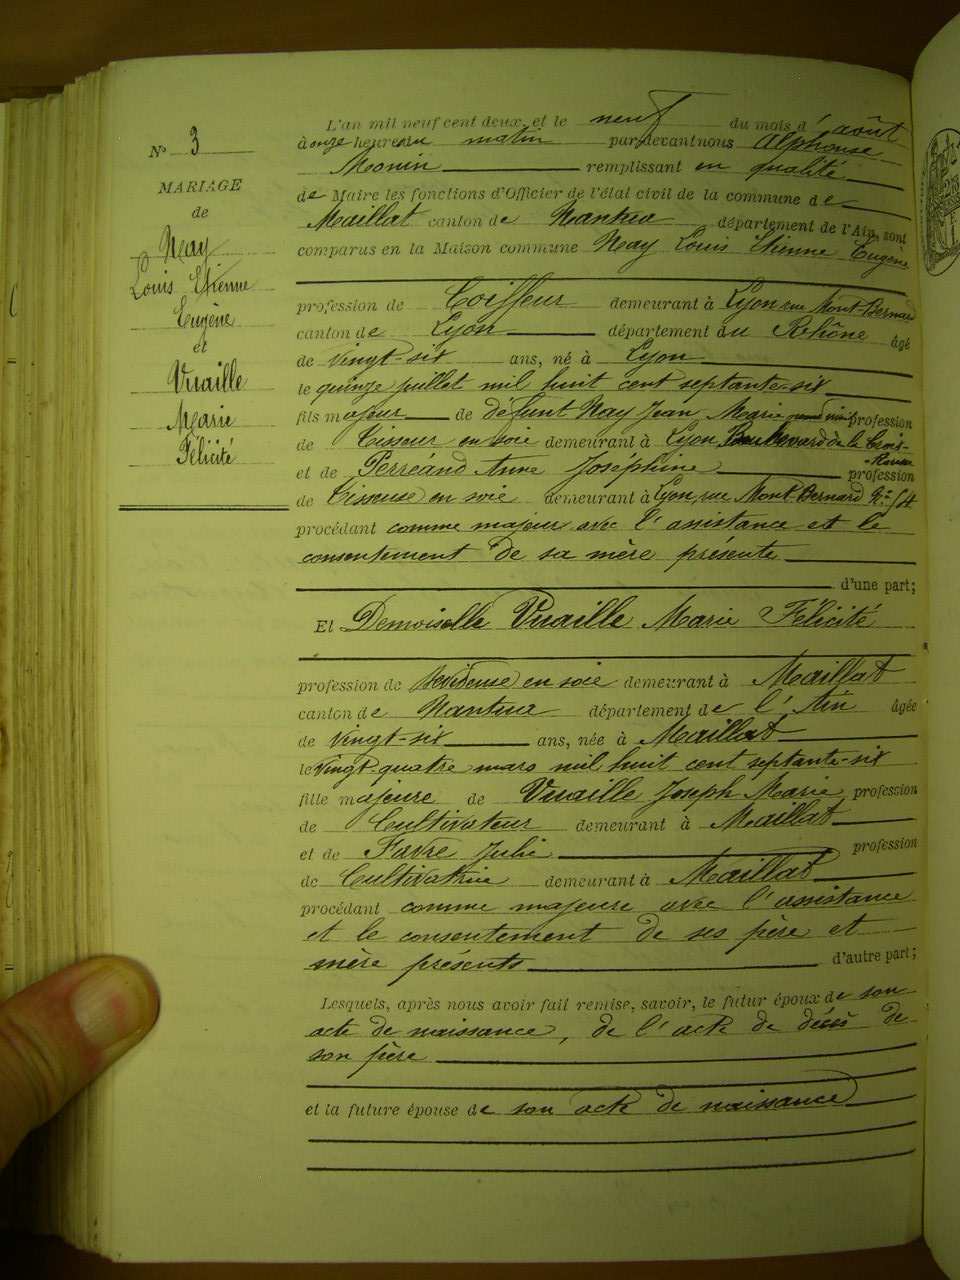 N° 3
MARIAGE
de
Nay
Louis Etienne
Eugène
et
Vuaille
Marie
Félicité
L'an mil neuf cent deux, et le neuf du mois d'août
à onze heures du matin par devant nous Alphonse
Monin remplissant en qualité
de Maire les fonctions d'Officier de l'état civil de la commune de
Maillat canton de Nantua département de l'Ain, sont
comparus en la Maison commune Nay Louis Etienne Eugène
profession de Coiffeur demeurant à Lyon rue Mont-Bernard
canton de Lyon département du Rhône âgé
de vingt-six ans, né à Lyon
le quinze juillet mil huit cent septante-six
fils majeur de défunt Nay Jean Marie profession
de Tisseur en soie demeurant à Lyon, Boulevard de la Croix-
Rousse
et de Perréand Anne Joséphine profession
de Tisseuse en soie demeurant à Lyon, rue Mont-Bernard N°
procédant comme majeur avec l'assistance et le
consentement de sa mère présente
d'une part;
Et Demoiselle Vuaille Marie Félicité
profession de dévideuse en soie demeurant à Maillat
canton de Nantua département de l'Ain âgée
de vingt-six ans, née à Maillat
le vingt-quatre mars mil huit cent septante-six
fille majeure de Vuaille Joseph Marie profession
de Cultivateur demeurant à Maillat
et de Favre Julie profession
de Cultivatrice demeurant à Maillat
procédant comme majeure avec l'assistance
et le consentement de ses père et
mère présents d'autre part;
Lesquels, après nous avoir fait remise, savoir, le futur époux de son
acte de naissance, de l'acte de décès de
son père
et la future épouse de son acte de naissance